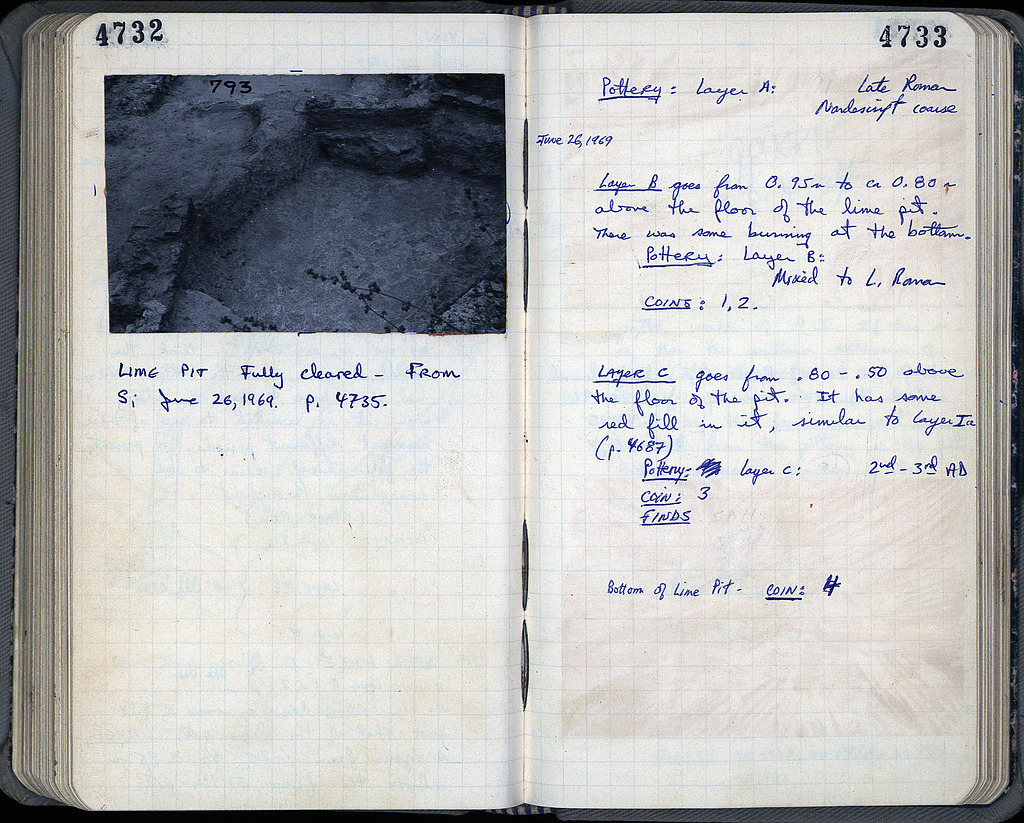 4732
793
LIME PIT Fully cleared - FROM
S; June 26, 1969. p. 4735.
4733
Pottery: Layer A: Late Roman
Nondescript coarse
June 26, 1969
Layer B goes from 0.95m to ca 0.80 m
above the floor of the lime pit.
There was some burning at the bottom.
Pottery: Layer B:
Mixed to L. Roman
COINS: 1, 2.
LAYER C goes from .80 - .50 above
the floor of the pit. It has some
red fill in it, similar to Layer Ia
(p. 4687)
Pottery: Layer C: 2nd - 3rd AD
COIN: 3
FINDS
Bottom of Lime Pit - COIN: 4